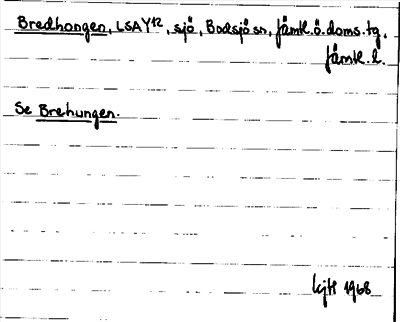 Bredhongen, LSAY12, sjö, Bodsjö sn, Jämtl.ö.doms.tg.
Jämtl.l.
Se Brehungen.
kjH 1968